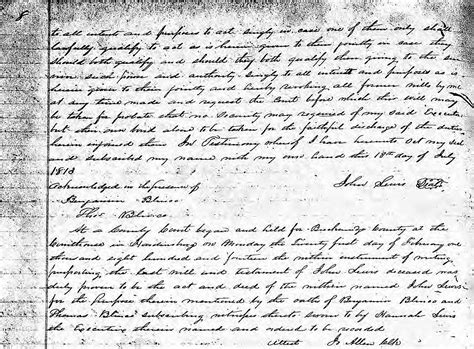 8
to all intent and purposes to act singly in case one of them only shall
lawfully qualify to act as is herein given to them jointly in case they
should both qualify and should they both qualify then giving to the sur
vivor such power and authority singly to all intents and purposes as is
herein given to them jointly and hereby revoking all former wills by me
at any time made and request the Court before which this will may
be taken for probate that no security may required of my said Executors
but their own bond alone to be taken for the faithful discharge of the duties
herein enjoined them In Testimony whereof I have hereunto set my seal
and subscribed my name with my own hand this 18th day of July
1813
John Lewis Seal
Acknowledged in the presence of
Benjamin
Thos
At a County Court began and held for County at the
Courthouse in on Monday the twenty first day of February one
thousand eight hundred and fourteen the within instrument of writing
purporting the last will and testament of John Lewis deceased was
duly proven to be the act and deed of the within named John Lewis
for the purpose therein mentioned by the oaths of Benjamin and
Thomas subscribing witnesses thereto sworn to by Hannah Lewis
the Executrix therein named and ordered to be recorded
Attest Jo Allen clk